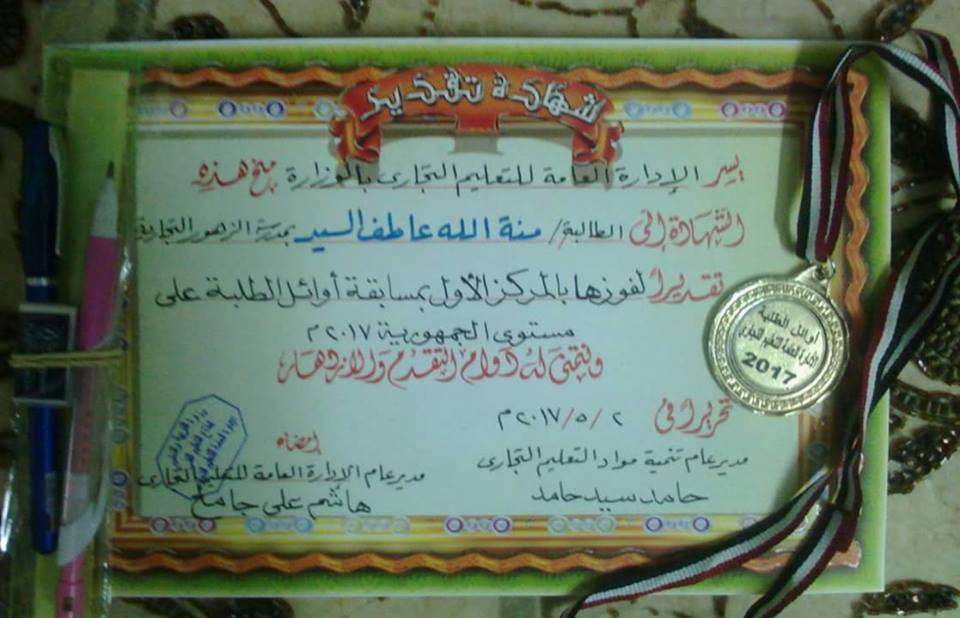 شهادة تقدير
يسر الإدارة العامة للتعليم التجارى بالوزارة منح هذه
الشهادة إلى الطالبة/ منة الله عاطف السيد بمدرسة الزهور التجارية
تقديراً لفوزها بالمركز الأول بمسابقة أوائل الطلبة على
مستوى الجمهورية ٢٠١٧م
ونتمنى له دوام التقدم والازدهار
تحريراً فى ٢/٥/٢٠١٧م
مدير عام تنمية مواد التعليم التجارى
حامد سيد حامد
إمضاء
مدير عام الإدارة العامة للتعليم التجارى
هاشم على جامع
أوائل الطلبة
2017